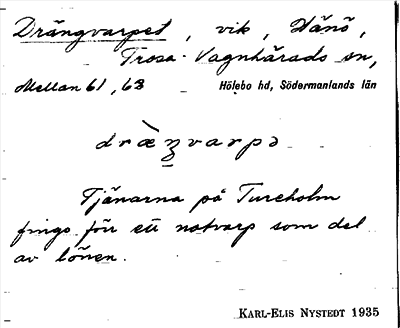 Drängvarpet, vik, Hänö,
Trosa-Vagnhärads sn,
Mellan 61, 63 Hölebo hd, Södermanlands län
dræ̀n̥varpə
Tjänarna på Tureholm
fingo för ett notvarp som del
av lönen.
KARL-ELIS NYSTEDT 1935